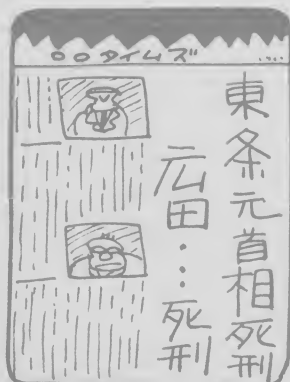 ○○タイムズ
東条元首相死刑
広田・・・死刑